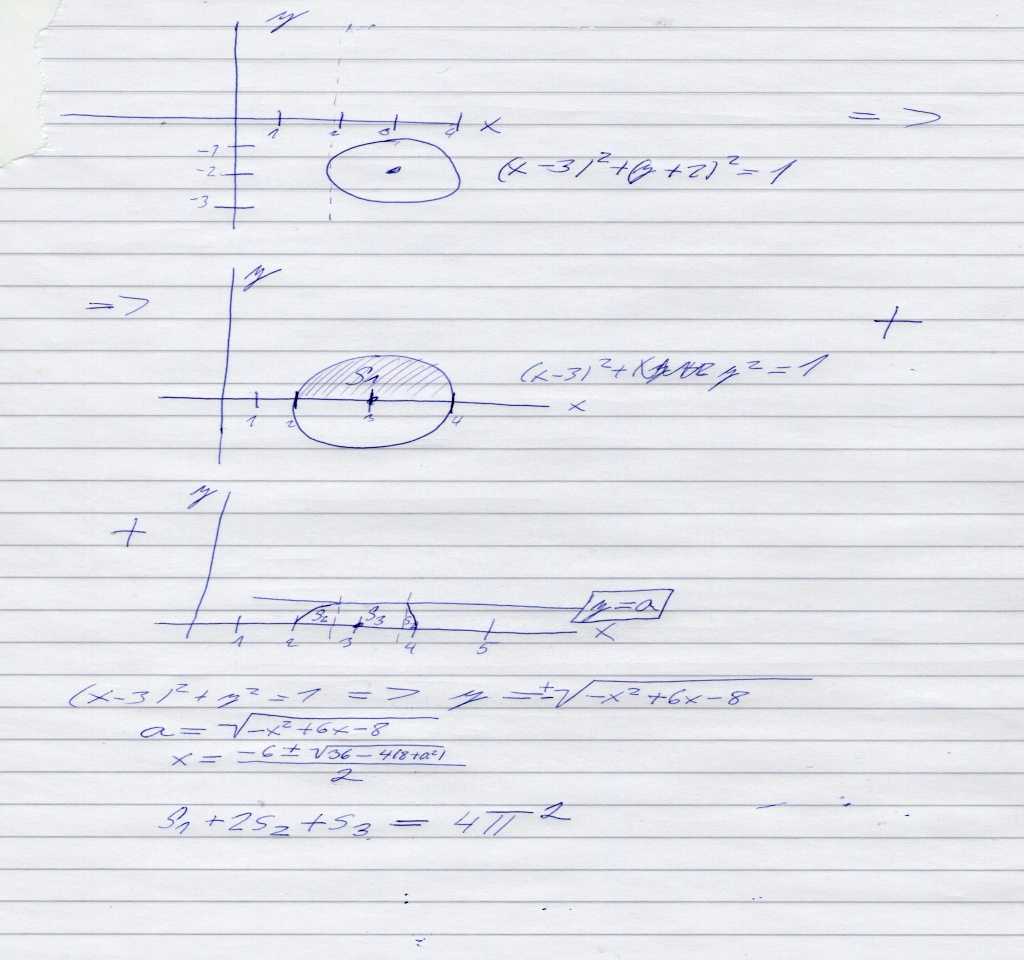 y
1 2 3 4 x
=>
-1
-2
-3
(x-3)²+(y+2)²=1
y
=>
+
S₁
(x-3)²+ y²=1
1 2 3 4 x
y
+
S₂ S₃ S₂
y=a
1 2 3 4 5 x
(x-3)²+y²=1 => y=±√-x²+6x-8
a=√-x²+6x-8
x= -6±√36-4(8+a²) / 2
S₁+2S₂+S₃=4π²